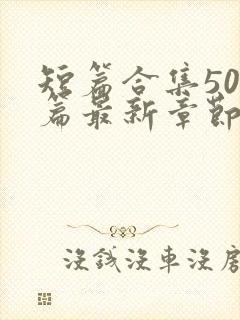 短篇合集50
篇最新章節
沒錢沒車沒房